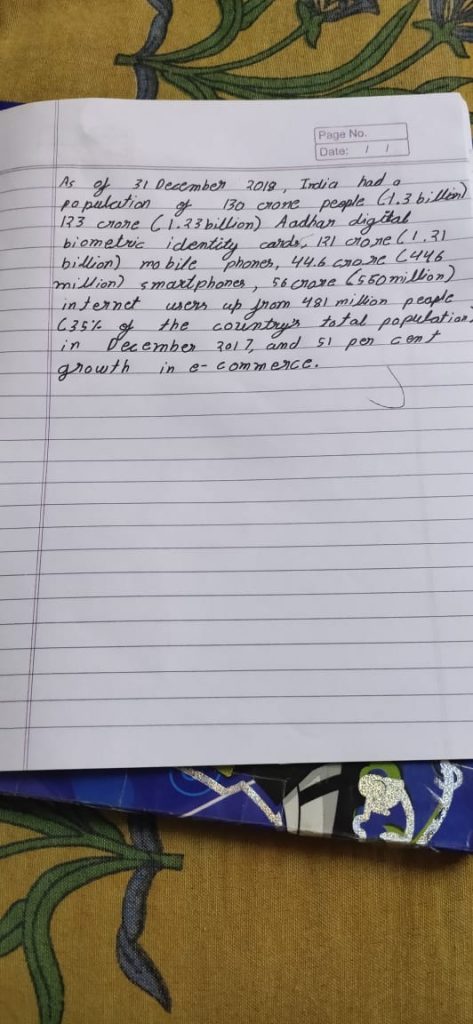 Page No.
Date: / /
As of 31 December 2018, India had a
population of 130 crore people (1.3 billion)
123 crore (1.23 billion) Aadhar digital
biometric identity cards, 121 crore (1.21
billion) mobile phones, 44.6 crore (446
million) smartphones, 56 crore (560 million)
internet users up from 481 million people
(35% of the country's total population)
in December 2017, and 51 per cent
growth in e-commerce.